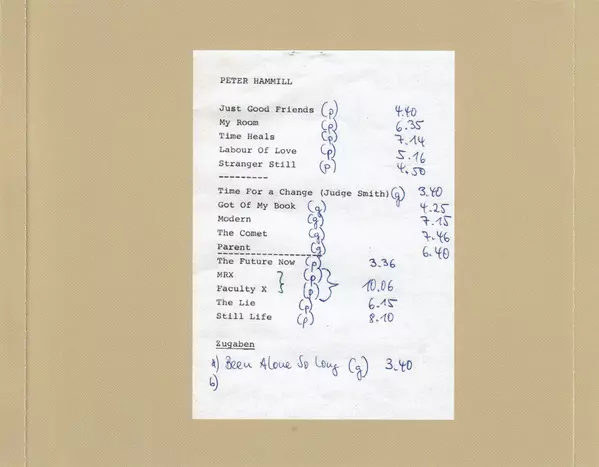 PETER HAMMILL
Just Good Friends (p) 4.40
My Room (p) 6.35
Time Heals (p) 7.14
Labour Of Love (p) 5.16
Stranger Still (p) 4.50
---------
Time For a Change (Judge Smith) (g) 3.40
Got Of My Book (g) 4.25
Modern (g) 7.15
The Comet (g) 7.46
Parent (g) 6.40
The Future Now (p) 3.36
MRX (p)
Faculty X (p) 10.06
The Lie (p) 6.15
Still Life (p) 8.10
Zugaben
a) Been Alone So Long (g) 3.40
b)